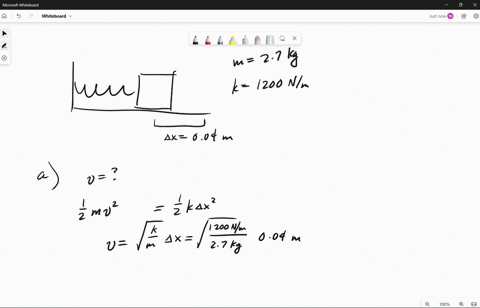 Microsoft Whiteboard
Whiteboard
Just now
m = 2.7 kg
k = 1200 N/m
Δx = 0.04 m
a) v = ?
½ m v² = ½ k Δx²
v = √(k/m) Δx = √(1200 N/m / 2.7 kg) 0.04 m
100%